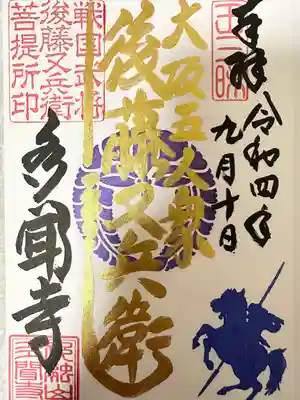 奉拝 令和四年
九月十日
大坂五人衆
後藤又兵衛
戦国武将
後藤又兵衛
菩提所印
多聞寺